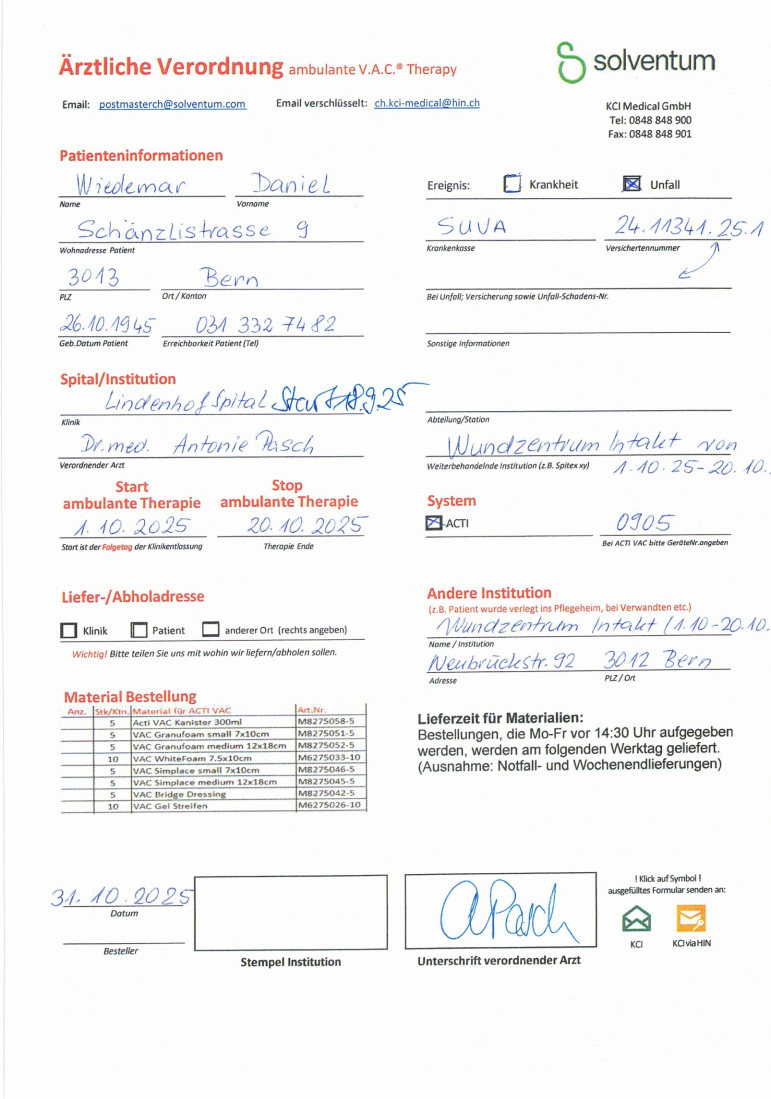 Ärztliche Verordnung ambulante V.A.C.® Therapy
solventum
Email: postmasterch@solventum.com Email verschlüsselt: ch.kci-medical@hin.ch
KCI Medical GmbH
Tel: 0848 848 900
Fax: 0848 848 901
Patienteninformationen
Wiedemar Daniel
Name Vorname
Ereignis: Krankheit Unfall
Schänzlistrasse 9
Wohnadresse Patient
SUVA 24.11341.25.1
Krankenkasse Versichertennummer
3013 Bern
PLZ Ort / Kanton
Bei Unfall; Versicherung sowie Unfall-Schadens-Nr.
26.10.1945 031 332 74 82
Geb.Datum Patient Erreichbarkeit Patient (Tel)
Sonstige Informationen
Spital/Institution
Lindenhof Spital Start 18.9.25
Klinik
Abteilung/Station
Dr. med. Antonie Pasch
Verordnender Arzt
Wundzentrum Intakt von
1.10.25-20.10.
Weiterbehandelnde Institution (z.B. Spitex xy)
Start
ambulante Therapie
Stop
ambulante Therapie
1.10.2025 20.10.2025
Start ist der Folgetag der Klinikentlassung Therapie Ende
System
ACTI 0905
Bei ACTI VAC bitte GeräteNr.angeben
Liefer-/Abholadresse
Klinik Patient anderer Ort (rechts angeben)
Wichtig! Bitte teilen Sie uns mit wohin wir liefern/abholen sollen.
Andere Institution
(z.B. Patient wurde verlegt ins Pflegeheim, bei Verwandten etc.)
Wundzentrum Intakt (1.10-20.10.
Name / Institution
Neubrückstr. 92 3012 Bern
Adresse PLZ / Ort
Material Bestellung
Anz. Stk/Ktn. Material für ACTI VAC Art.Nr.
5 Acti VAC Kanister 300ml M8275058-5
5 VAC Granufoam small 7x10cm M8275051-5
5 VAC Granufoam medium 12x18cm M8275052-5
10 VAC WhiteFoam 7.5x10cm M6275033-10
5 VAC Simplace small 7x10cm M8275046-5
5 VAC Simplace medium 12x18cm M8275045-5
5 VAC Bridge Dressing M8275042-5
10 VAC Gel Streifen M6275026-10
Lieferzeit für Materialien:
Bestellungen, die Mo-Fr vor 14:30 Uhr aufgegeben
werden, werden am folgenden Werktag geliefert.
(Ausnahme: Notfall- und Wochenendlieferungen)
31.10.2025
Datum
Besteller
Stempel Institution
APasch
Unterschrift verordnender Arzt
! Klick auf Symbol !
ausgefülltes Formular senden an:
KCI KCI via HIN